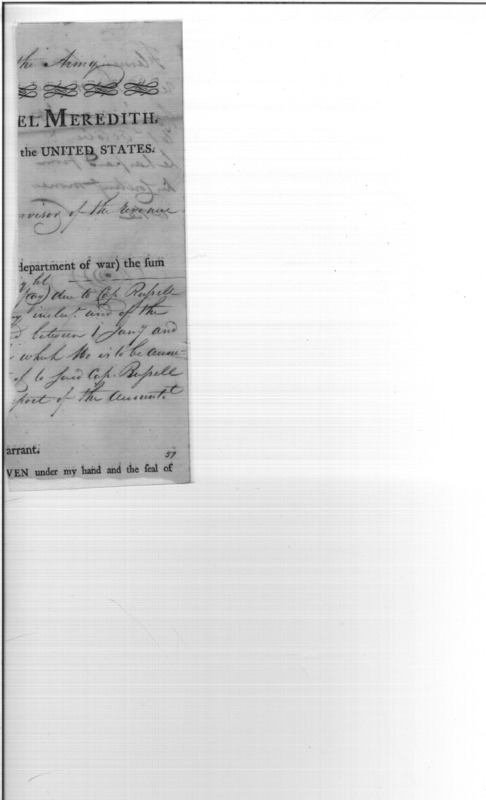 the Army
EL MEREDITH.
the UNITED STATES.
visor of the revenue
department of war) the sum
ght
pay) due to Cap. Russell
inclus. and of the
d between 1 Jany and
which 160 is to be
of to said Cap. Russell
port of the Amount.
arrant.
57
VEN under my hand and the seal of